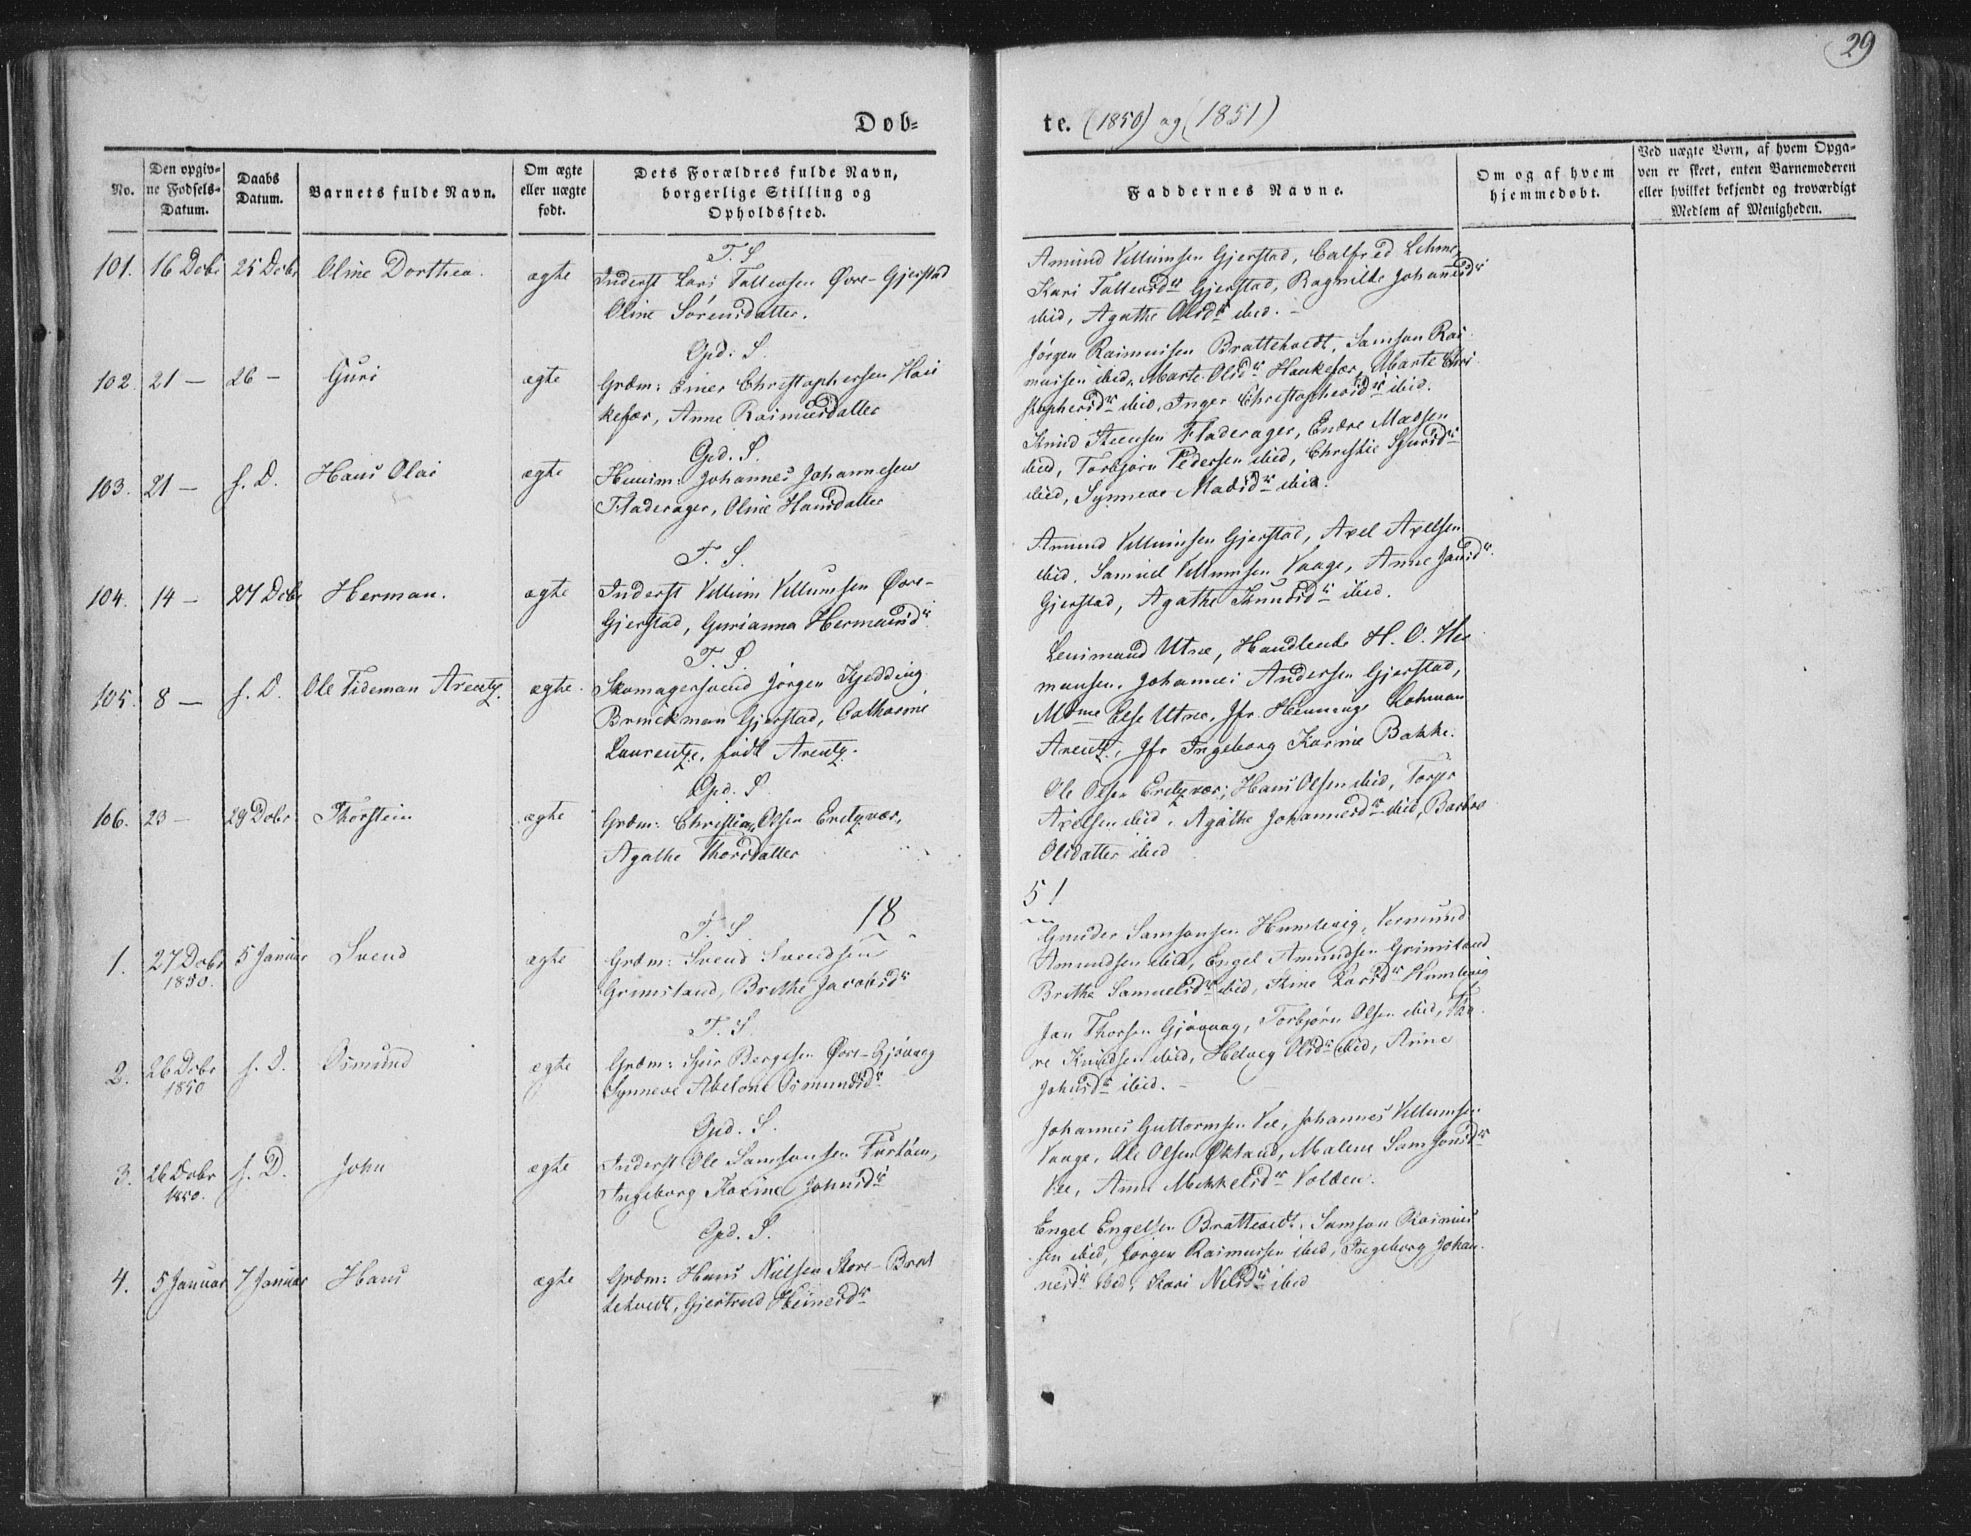 29
Döb-
te. (1850) og (1851)
No.
Den opgiv-
ne Fødsels-
Datum.
Daabs
Datum.
Barnets fulde Navn.
Om ægte
eller uægte
født.
Dets Forældres fulde Navn,
borgerlige Stilling og
Opholdssted.
Faddernes Navne.
Om og af hvem
hjemmedøbt.
Ved uægte Børn, af hvem Opga-
ven er skeet, enten Barnemoderen
eller hvilket bekjendt og troværdigt
Medlem af Menigheden.
T. S.
101. 16 Debr 25 Debr Oline Dorthea. ægte Inderst Lars Tollevsen Øvre-Gjerstad
Oline Sörensdatter.
Amund Villumsen Gjerstad,
Kari Tollevsdr Gjerstad, Ragnilde Johansdr
ibid, Agathe Olsdr ibid. -
Gpd. S.
102. 21 - 26 - Guri ægte Grdm: Einer Christophersen Hau
kefær, Anne Rasmusdatter
Jörgen Rasmussen Brattetvedt, Samson Ras
mussen ibid, Marte Olsdr Haukefær, Marte Chri
stophersdr ibid, Inger Christophersdr ibid.
Gpd. S.
103. 21 - s. D. Hans Olai ægte Huusm: Johannes Johannesen
Fladerager, Oline Hansdatter
Knud Steensen Fladerager, Endre Madsen
ibid, Torbjörn Pedersen ibid, Christie Sjursdr
ibid, Synneve Madsdr ibid.
T. S.
104. 14 - 27 Debr Herman. ægte Inderst Villum Villumsen Øvre-
Gjerstad, Gurianna Hermansdr
Amund Villumsen Gjerstad, Axel Axelsen
ibid, Samuel Villumsen Vaage, Anne Jansdr
Gjerstad, Agathe Knudsdr ibid.
T. S.
105. 8 - s. D. Ole Tideman Arentz. ægte. Skomagersvend Jörgen Kjedding
Brinckman Gjerstad, Catharine
Laurentze, født Arentz.
Lensmand Utne, Handlende H. O. Her
mansen, Johannes Andersen Gjerstad,
Mdme Else Utne, Jfr. Henninge Rohman
Arentz, Jfr Ingeborg Karine Bakke.
Gpd. S.
106. 23 - 29 Debr Thorstein ægte Grdm: Christian Olsen Eretzvær,
Agathe Thorsdatter
Ole Olsen Eretzvær, Hans Olsen ibid, Torger
Axelsen ibid, Agathe Johannesdr ibid, Barbro
Olsdatter ibid
18
51
T. S.
1. 27 Debr 5 Januar Svend ægte Grdm: Svend Svendsen
1850. Grimstand, Brithe Jacobsdr
Gunder Samsonsen Humlevig, Vermund
Amundsen ibid, Engel Amundsen Grimstand
Brithe Samuelsdr ibid, Stine Larsdr Humlevig
T. S.
2. 26 Debr s. D. Osmund ægte Grdm: Sjur Bergesen Øvre-Gjövaag
1850 Synneve Abelone Osmundsdr
Jan Thorsen Gjövaag, Torbjörn Olsen ibid, Tho
re Knudsen ibid, Helvig Olsdr ibid, Anne
Johnsdr ibid. -
Gpd. S.
3. 26 Debr s. D. John ægte Inderst Ole Samsonsen Turtöen,
1850. Ingeborg Karine Johnsdr
Johannes Guttormsen Vee, Johannes Villumsen
Vaage, Ole Olsen Økland, Malene Samsonsdr
Vee, Anne Mikkelsdr Volden.
Gpd. S.
4. 5 Januar 7 Januar Hans ægte Grdm: Hans Nielsen Store-Brat
tetvedt, Gjertrud Heinesdr
Engel Engelsen Brattetvedt, Samson Rasmus
sen ibid, Jörgen Rasmussen ibid, Ingeborg Johan
nesdr ibid, Kari Nilsdr ibid